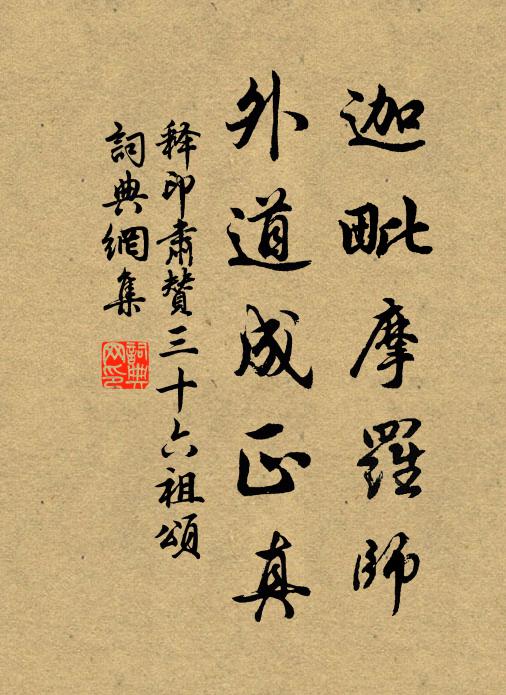 迦毗摩羅師
外道成正真
释印肃赞三十六祖頌
詞典網集
詞典网印